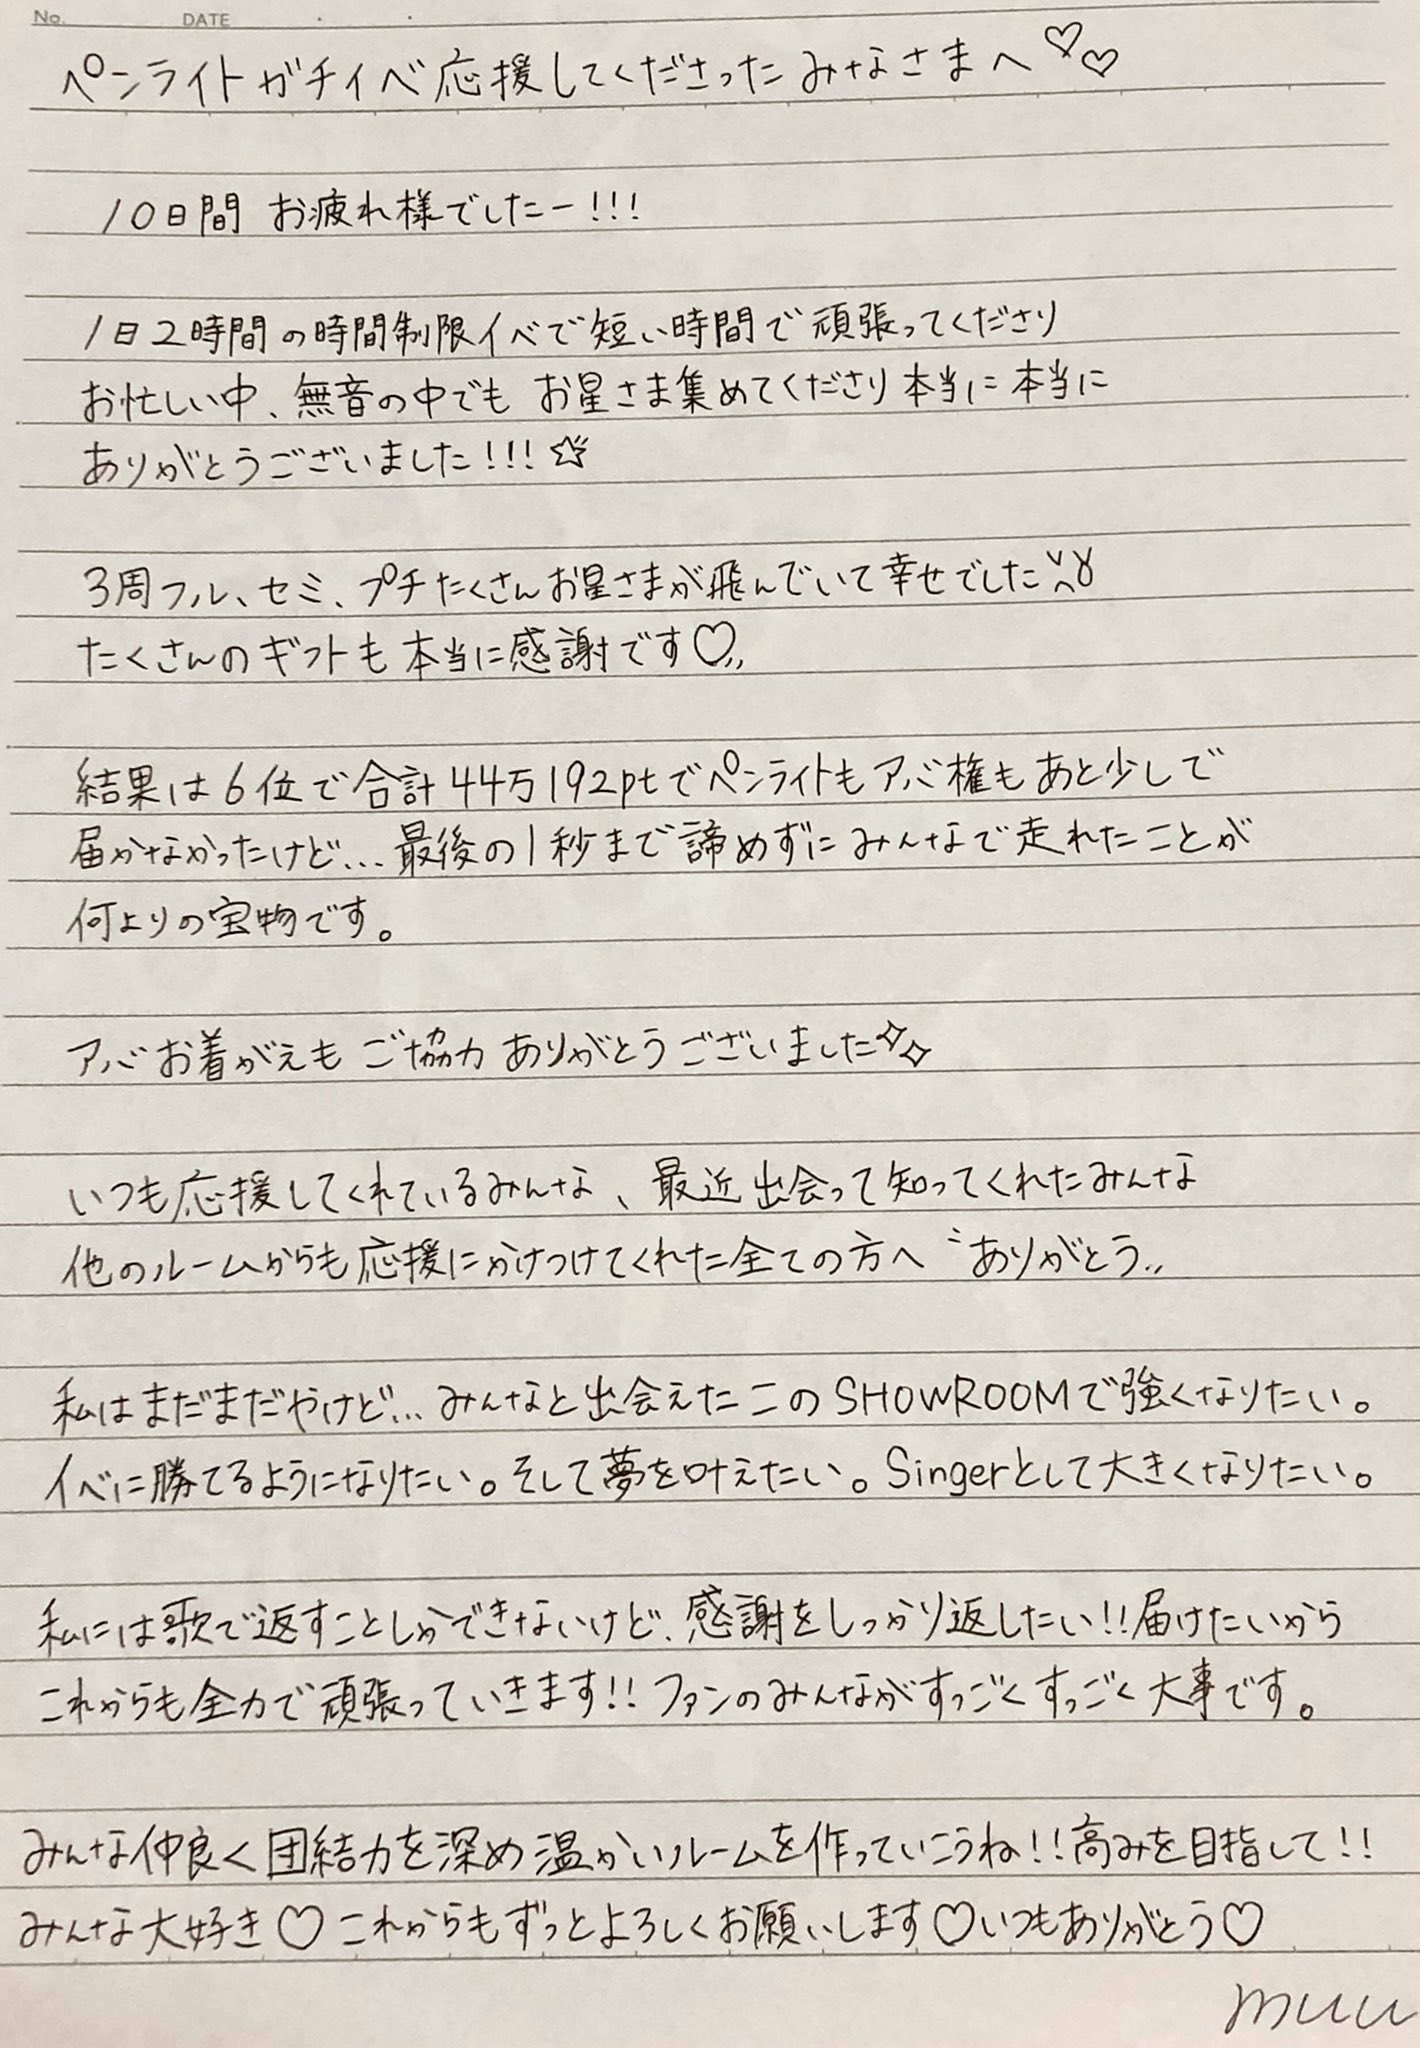 No. DATE
ペンライトガチイベ応援してくださったみなさまへ♡♡
10日間 お疲れ様でしたー!!!
1日2時間の時間制限イベで短い時間で頑張ってくださり
お忙しい中、無音の中でも お星さま集めてくださり本当に本当に
ありがとうございました!!!☆
3周フル、セミ、プチたくさんお星さまが飛んでいて幸せでした
たくさんのギフトも本当に感謝です♡
結果は6位で合計44万192ptでペンライトもアバ権もあと少しで
届かなかったけど...最後の1秒まで諦めずにみんなで走れたことが
何よりの宝物です。
アバお着がえもご協力ありがとうございました✧✧
いつも応援してくれているみんな、最近出会って知ってくれたみんな
他のルームからも応援にかけつけてくれた全ての方へ〝ありがとう〟
私はまだまだやけど...みんなと出会えたこのSHOWROOMで強くなりたい。
イベに勝てるようになりたい。そして夢を叶えたい。Singerとして大きくなりたい。
私には歌で返すことしかできないけど、感謝をしっかり返したい!!届けたいから
これからも全力で頑張っていきます!!ファンのみんながすっごくすっごく大事です。
みんな仲良く団結力を深め温かいルームを作っていこうね!!高みを目指して!!
みんな大好き♡これからもずっとよろしくお願いします♡いつもありがとう♡
muu